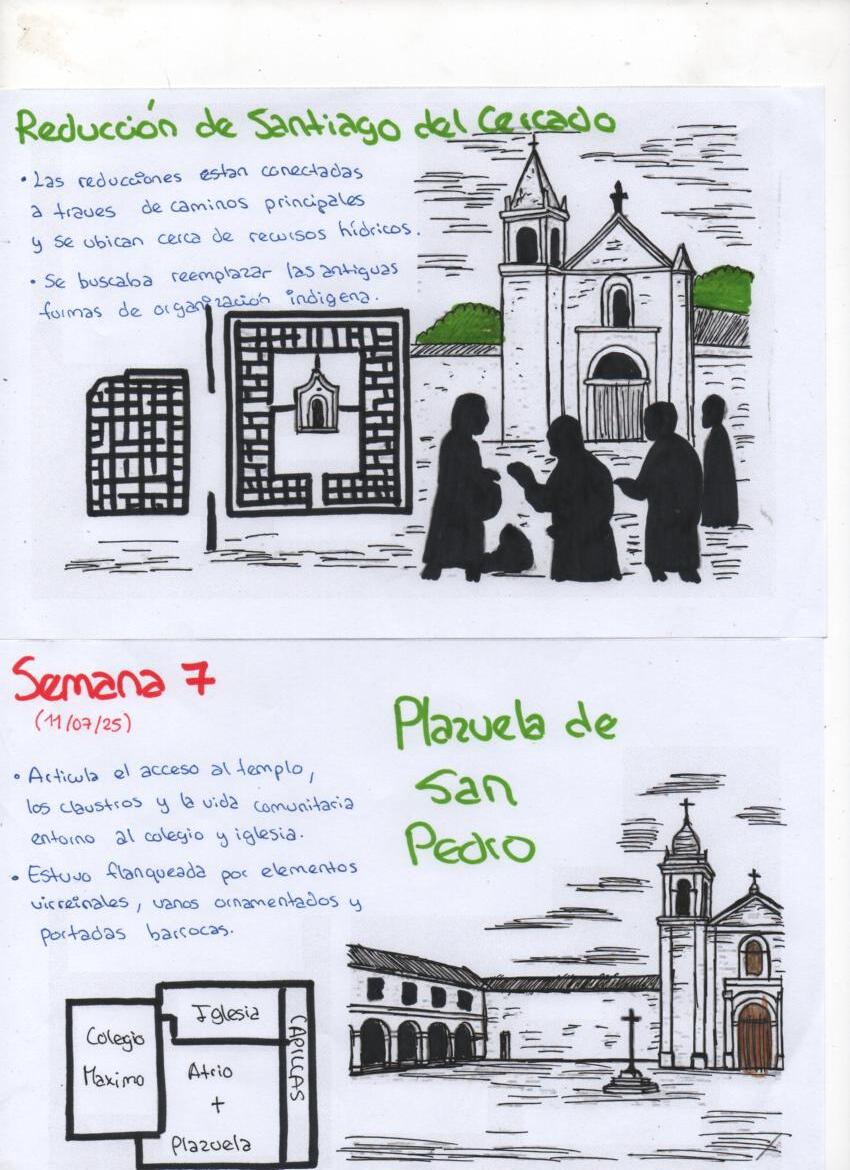 Reducción de Santiago del Cercado
• Las reducciones estan conectadas
a traves de caminos principales
y se ubican cerca de recursos hídricos.
• Se buscaba reemplazar las antiguas
formas de organización indigena.
Semana 7
(11/07/25)
Plazuela de
San
Pedro
• Articula el acceso al templo,
los claustros y la vida comunitaria
entorno al colegio y iglesia.
• Estuvo flanqueada por elementos
virreinales, vanos ornamentados y
portadas barrocas.
Colegio
Maximo
Iglesia
Atrio
+
Plazuela
CAPILLAS